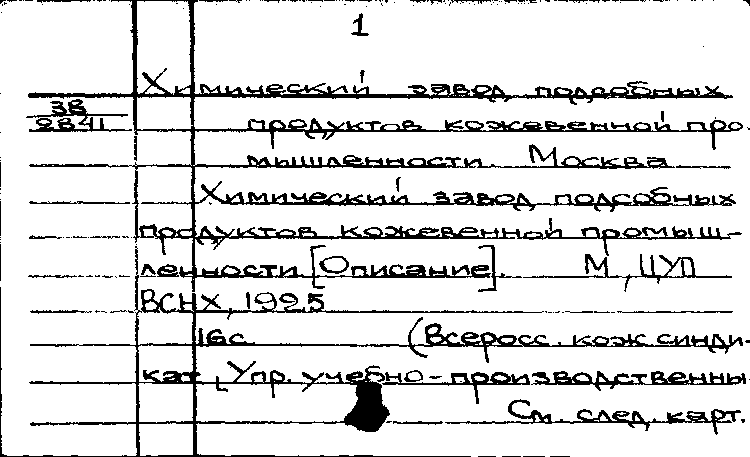 1
Химический завод подсобных
38
2841
продуктов кожевенной про-
мышленности. Москва
Химический завод подсобных
продуктов кожевенной промыш-
ленности [Описание]. М., ЦУП
ВСНХ, 1925
16с. (Всеросс. кож. синди-
кат, Упр. учебно-производственны
См. след. карт.